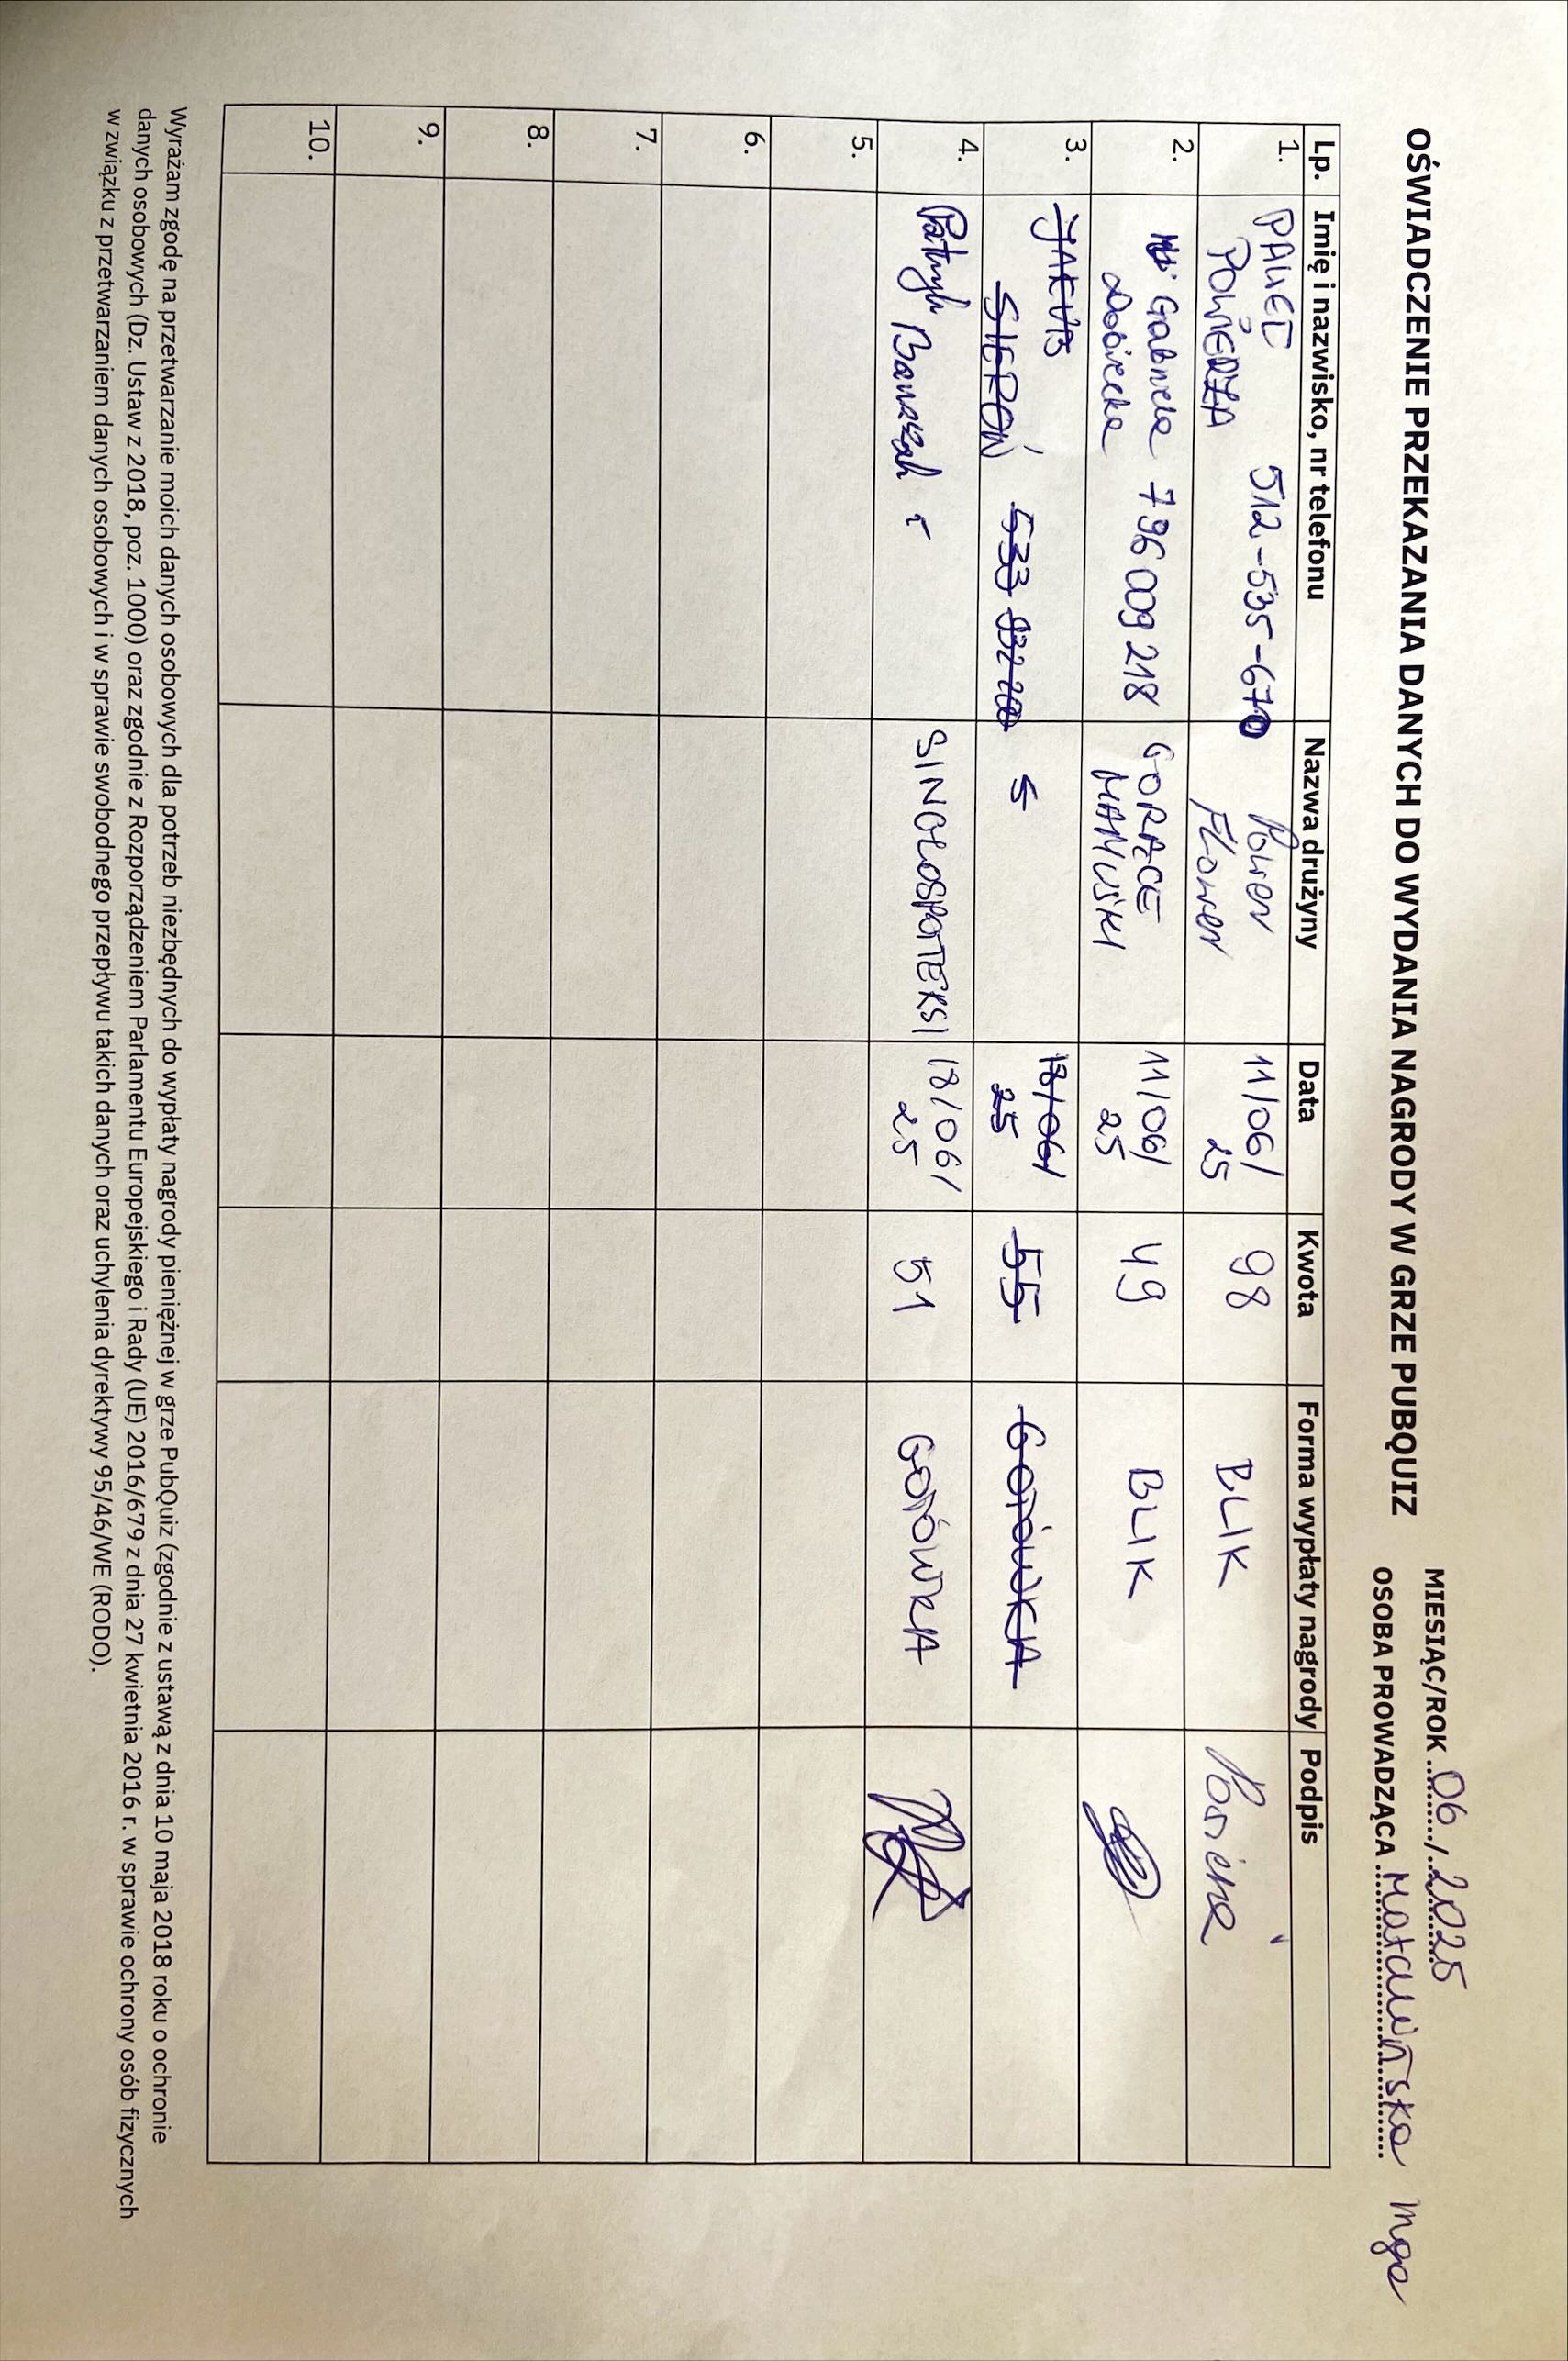 OŚWIADCZENIE PRZEKAZANIA DANYCH DO WYDANIA NAGRODY W GRZE PUBQUIZ
MIESIĄC/ROK 06/2025
OSOBA PROWADZĄCA
Lp. Imię i nazwisko, nr telefonu Nazwa drużyny Data Kwota Forma wypłaty nagrody Podpis
1. PAWEŁ 512-535-670 Power 11/06/ 98 BLIK
POWIERŻA Flower 25
2. Gabriela 796 009 218 GORĄCE 11/06/ 49 BLIK
MAMUŚKI 25
3. JAKUB 18/06/ 55 GOTÓWKA
SIEROŃ 533 25
4. Patryk Banaszak SINOŁOSPOTERSI 18/06/ 51 GOTÓWKA
25
5.
6.
7.
8.
9.
10.
Wyrażam zgodę na przetwarzanie moich danych osobowych dla potrzeb niezbędnych do wypłaty nagrody pieniężnej w grze PubQuiz (zgodnie z ustawą z dnia 10 maja 2018 roku o ochronie
danych osobowych (Dz. Ustaw z 2018, poz. 1000) oraz zgodnie z Rozporządzeniem Parlamentu Europejskiego i Rady (UE) 2016/679 z dnia 27 kwietnia 2016 r. w sprawie ochrony osób fizycznych
w związku z przetwarzaniem danych osobowych i w sprawie swobodnego przepływu takich danych oraz uchylenia dyrektywy 95/46/WE (RODO).